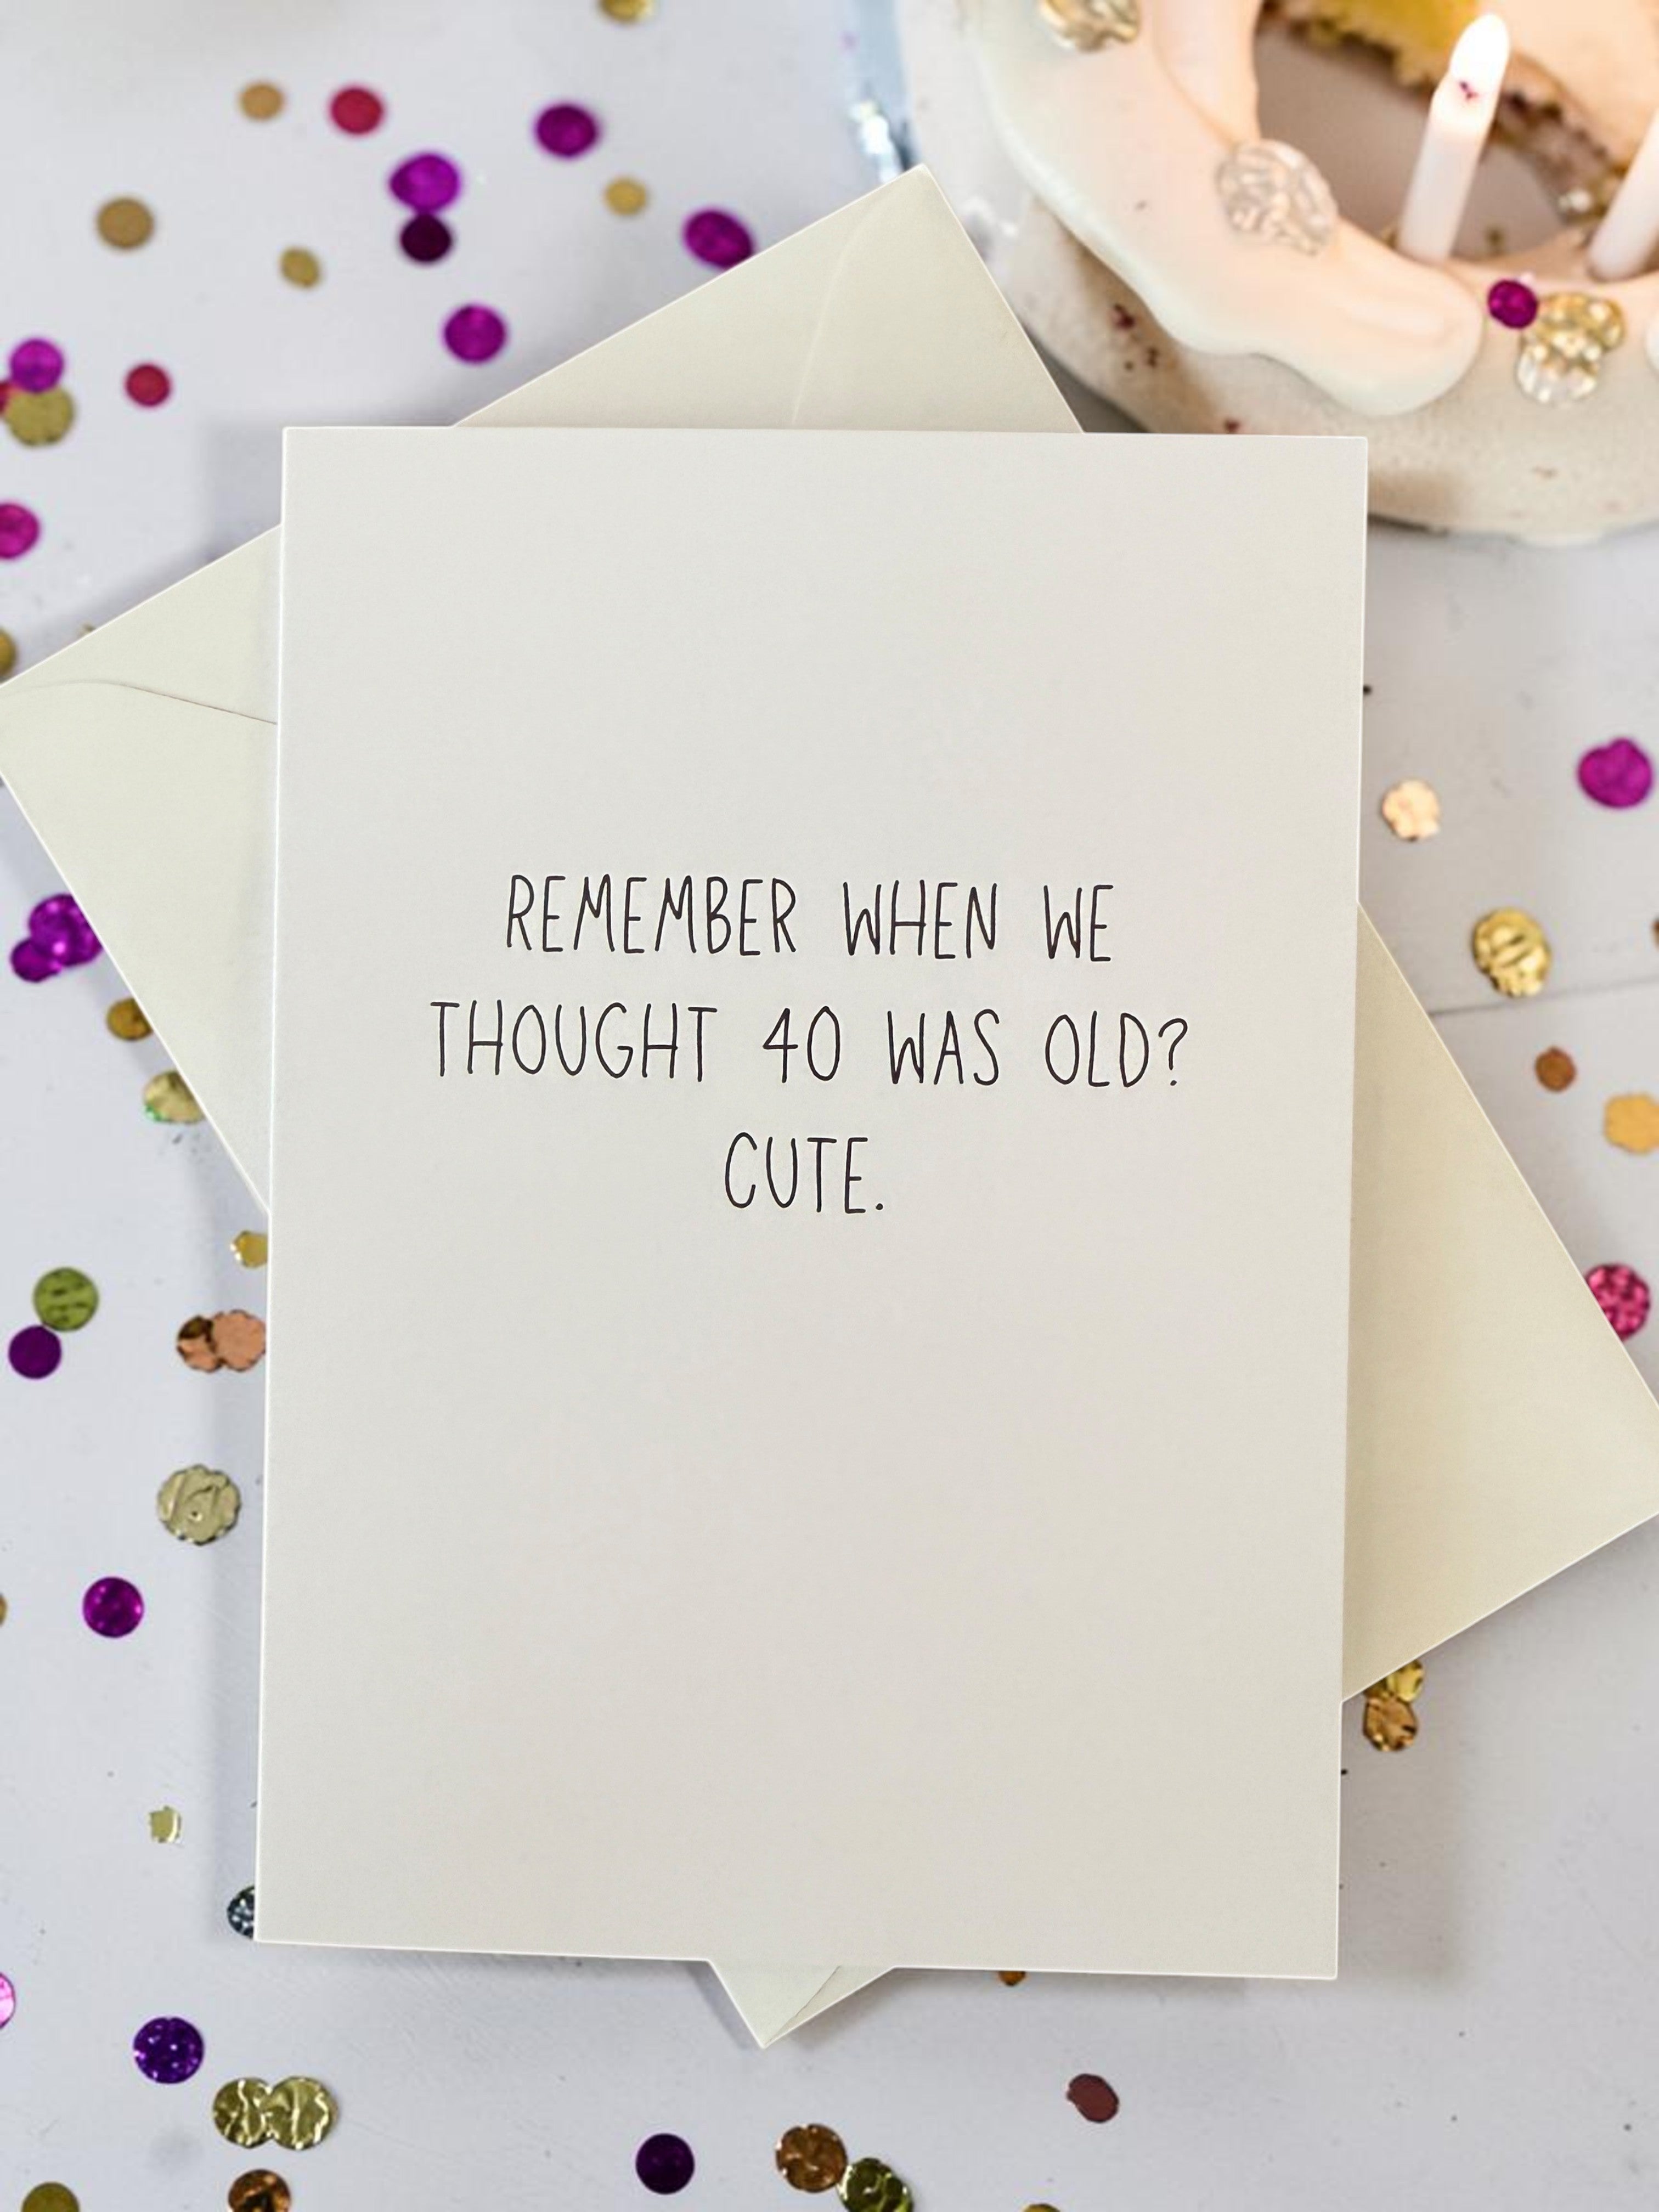 REMEMBER WHEN WE
THOUGHT 40 WAS OLD?
CUTE.